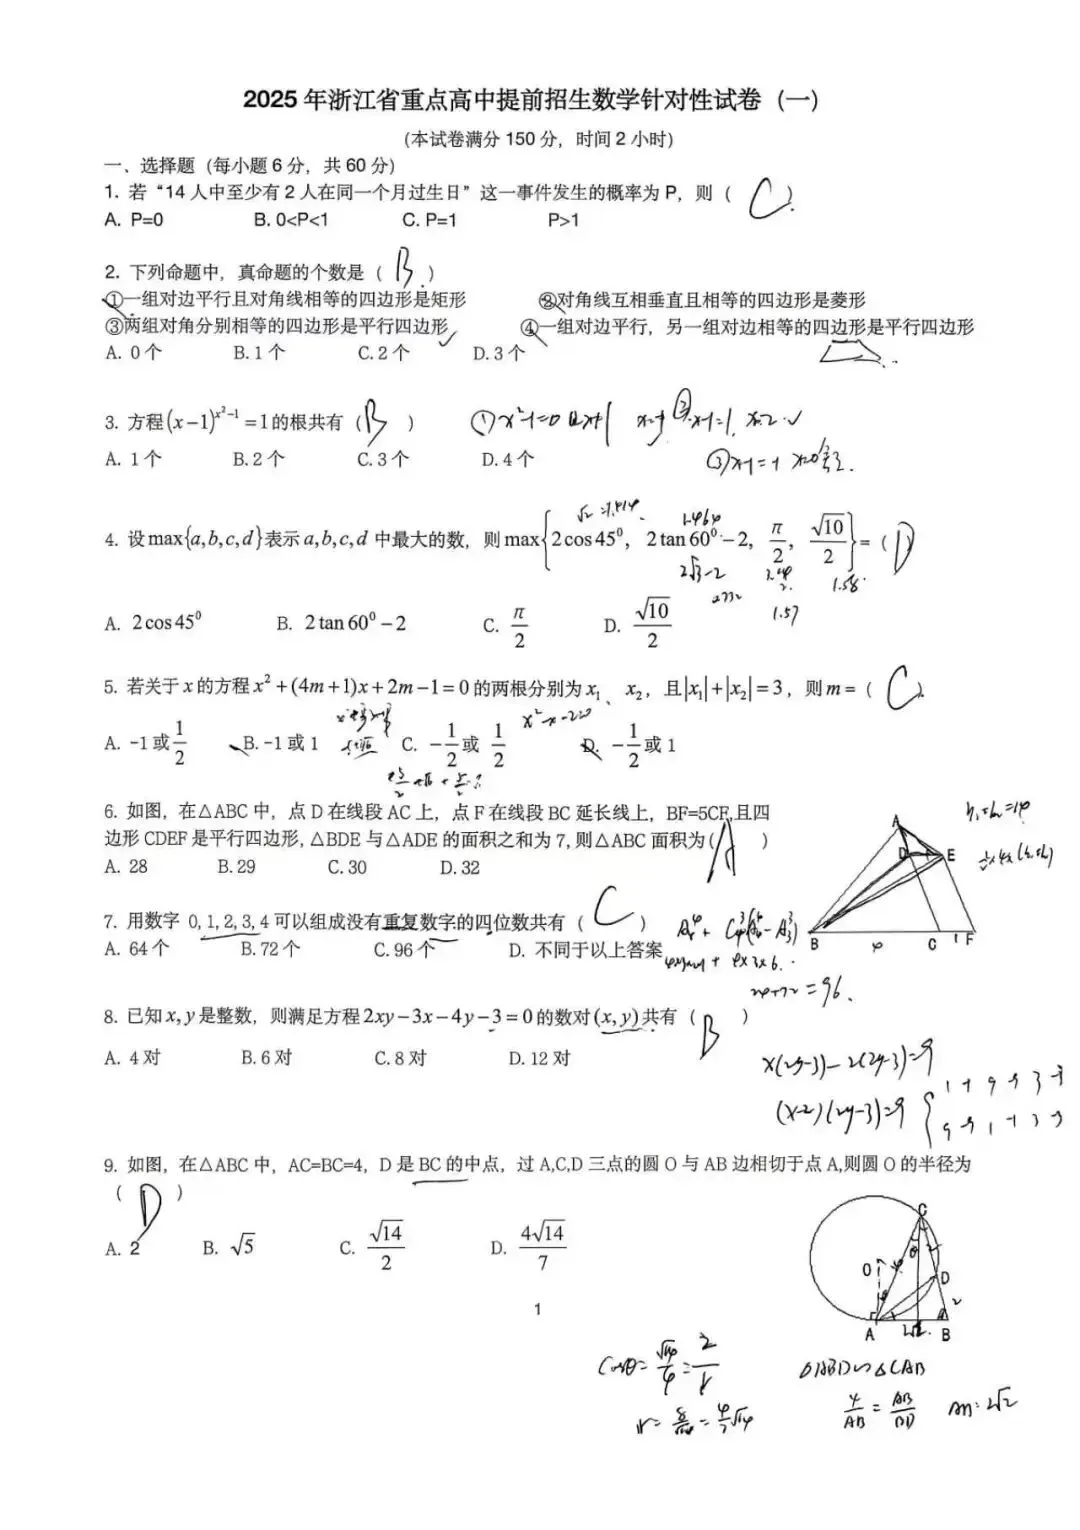 2025 年浙江省重点高中提前招生数学针对性试卷（一）
(本试卷满分 150 分，时间 2 小时)
一、选择题（每小题 6 分，共 60 分）
1. 若“14 人中至少有 2 人在同一个月过生日”这一事件发生的概率为 P，则（ C ）
A. P=0 B. 0<P<1 C. P=1 P>1
2. 下列命题中，真命题的个数是（ B ）
①一组对边平行且对角线相等的四边形是矩形 ②对角线互相垂直且相等的四边形是菱形
③两组对角分别相等的四边形是平行四边形 ✓ ④一组对边平行，另一组对边相等的四边形是平行四边形
A. 0 个 B. 1 个 C. 2 个 D. 3 个
3. 方程(x−1)^{x²−1}=1的根共有（ B ）
A. 1 个 B. 2 个 C. 3 个 D. 4 个
√2=1.414
1.464
4. 设max{a,b,c,d}表示a,b,c,d 中最大的数，则max{2cos45⁰，2tan60⁰−2, π/2, √10/2}=（ D ）
2√3−2
1.58
1.57
A. 2cos45⁰ B. 2tan60⁰−2 C. π/2 D. √10/2
5. 若关于x的方程x²+(4m+1)x+2m−1=0的两根分别为x₁、x₂，且|x₁|+|x₂|=3，则m=（ C ）
x²−x−2=0
A. -1或1/2 B. -1或1 C. −1/2或1/2 D. −1/2或1
6. 如图，在△ABC 中，点 D 在线段 AC 上，点 F 在线段 BC 延长线上，BF=5CF,且四
边形 CDEF 是平行四边形, △BDE 与△ADE 的面积之和为 7,则△ABC 面积为( A )
A. 28 B. 29 C. 30 D. 32
A
D E
B C F
4 1
7. 用数字 0, 1, 2, 3, 4 可以组成没有重复数字的四位数共有（ C ）
A. 64 个 B. 72 个 C. 96 个 D. 不同于以上答案
24+72=96.
8. 已知x,y是整数，则满足方程2xy−3x−4y−3=0的数对(x,y)共有（ B ）
A. 4 对 B. 6 对 C. 8 对 D. 12 对
x(2y-3)-2(2y-3)=9
(x-2)(2y-3)=9
9. 如图，在△ABC 中，AC=BC=4，D 是 BC 的中点，过 A,C,D 三点的圆 O 与 AB 边相切于点 A,则圆 O 的半径为
（ D ）
A. 2 B. √5 C. √14/2 D. 4√14/7
C
O D
A B
1
cosθ=√14/4=2/r
△ABD∽△CAB
4/AB=AB/BD AB=2√2